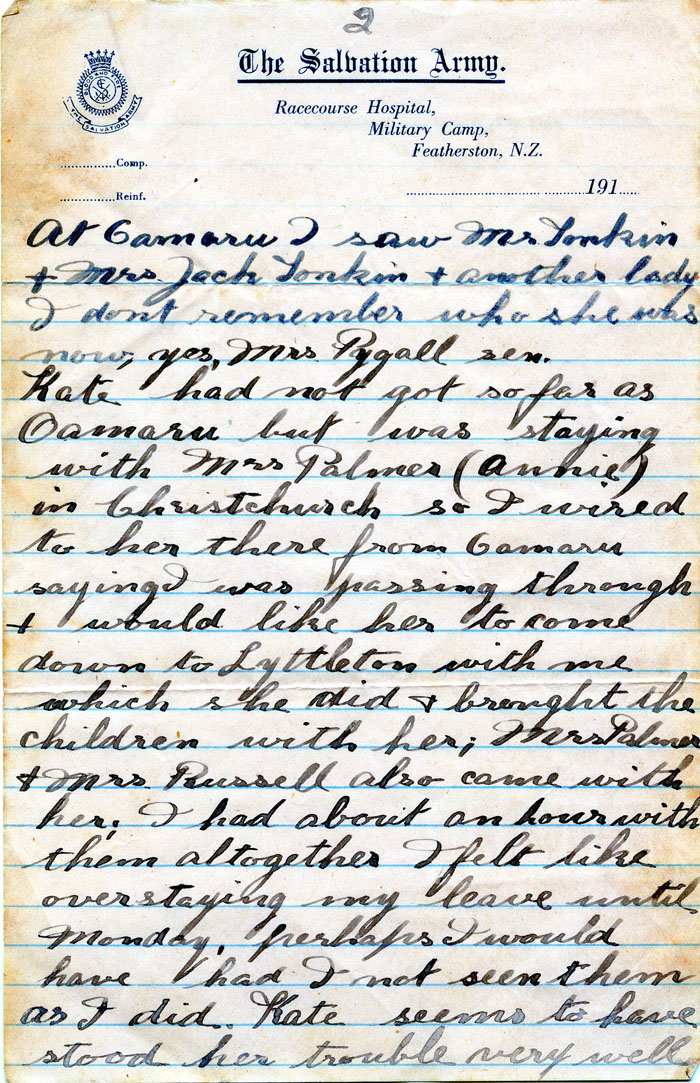 2
The Salvation Army.
BLOOD AND FIRE
THE SALVATION ARMY
Racecourse Hospital,
Military Camp,
Featherston, N.Z.
..............Comp.
..............Reinf.
..................................191.....
At Oamaru I saw Mr Tonkin
& Mrs Jack Tonkin & another lady
I dont remember who she was
now, yes, Mrs Pygall sen.
Kate had not got so far as
Oamaru but was staying
with Mrs Palmer (Annie)
in Christchurch so I wired
to her there from Oamaru
saying I was passing through
& would like her to come
down to Lyttleton with me
which she did & brought the
children with her; Mrs Palmer
& Mrs. Russell also came with
her. I had about an hour with
them altogether I felt like
overstaying my leave until
Monday, perhaps I would
have had I not seen them
as I did. Kate seems to have
stood her trouble very well,